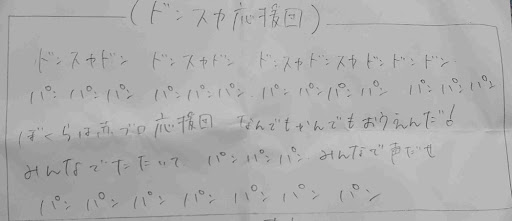 (ドンスカ応援団)
ドンスカドン ドンスカドン ドンスカドンスカドンドンドン
パンパンパン パンパンパン パンパンパンパン パンパンパン
ぼくらは赤ブロ応援団 なんでもかんでもおうえんだ!
みんなでたたいて パンパンパン みんなで声だせ
パン パン パン パン パン パン パン